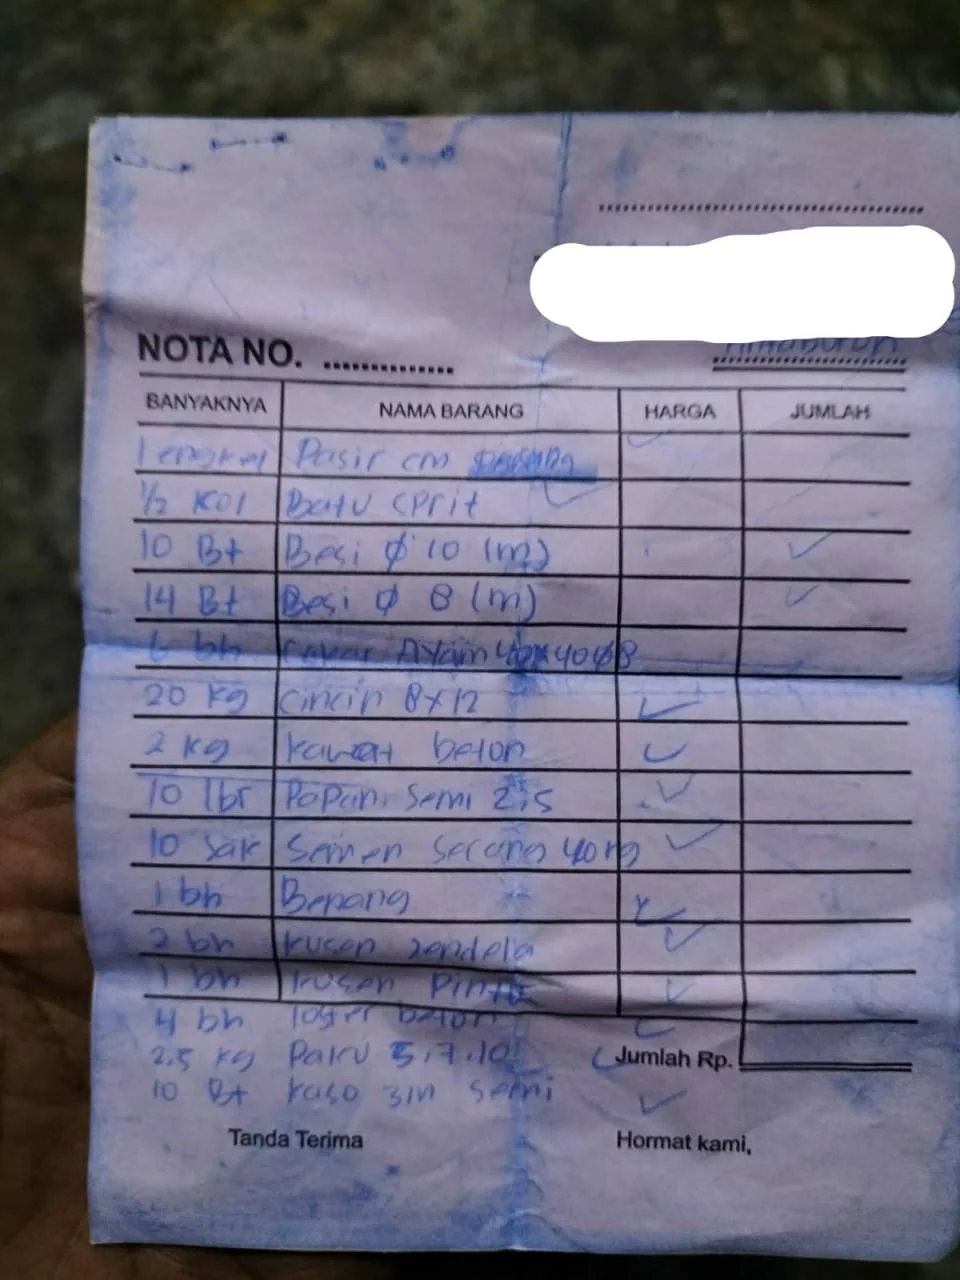 NOTA NO. ................
BANYAKNYA NAMA BARANG HARGA JUMLAH
1 engkel Pasir cm
1/2 Kol Batu Cprit
10 Bt Besi ∅ 10 (m)
14 Bt Besi ∅ 8 (m)
6 bh Cakar Ayam 40x40 ∅8
20 kg Cincin 8x12
2 kg kawat beton
10 lbr Papan Semi 2,5
10 Sak Semen Serang 40 kg
1 bh Benang
2 bh kusen Jendela
1 bh kusen Pintu
4 bh loster beton
2,5 kg Paku 5,7,10 Jumlah Rp.
10 Bt kaso 3m semi
Tanda Terima Hormat kami,